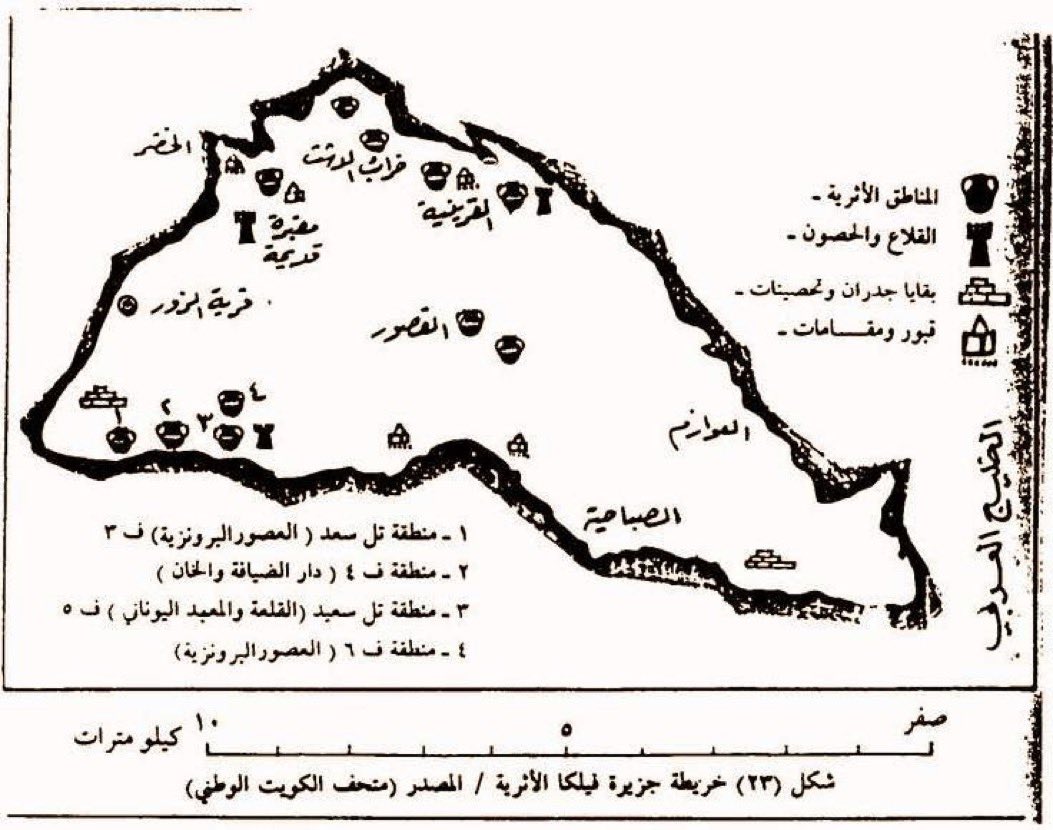 الخضر
خرائب الدشت
القرينية
مقبرة
قديمة
قرية الزور
القصور
العوازم
الصباحية
المناطق الأثرية ـ
القلاع والحصون ـ
بقايا جدران وتحصينات ـ
قبور ومقـــامات ـ
الخليج العربي
١
٢
٣
٤
١ ـ منطقة تل سعد ( العصور البرونزية) ف ٣
٢ ـ منطقة ف ٤ ( دار الضيافة والخان )
٣ ـ منطقة تل سعيد (القلعة والمعبد اليوناني ) ف ٥
٤ ـ منطقة ف ٦ ( العصور البرونزية)
صفر ٥ ١٠ كيلو مترات
شكل (٢٣) خريطة جزيرة فيلكا الأثرية / المصدر (متحف الكويت الوطني)